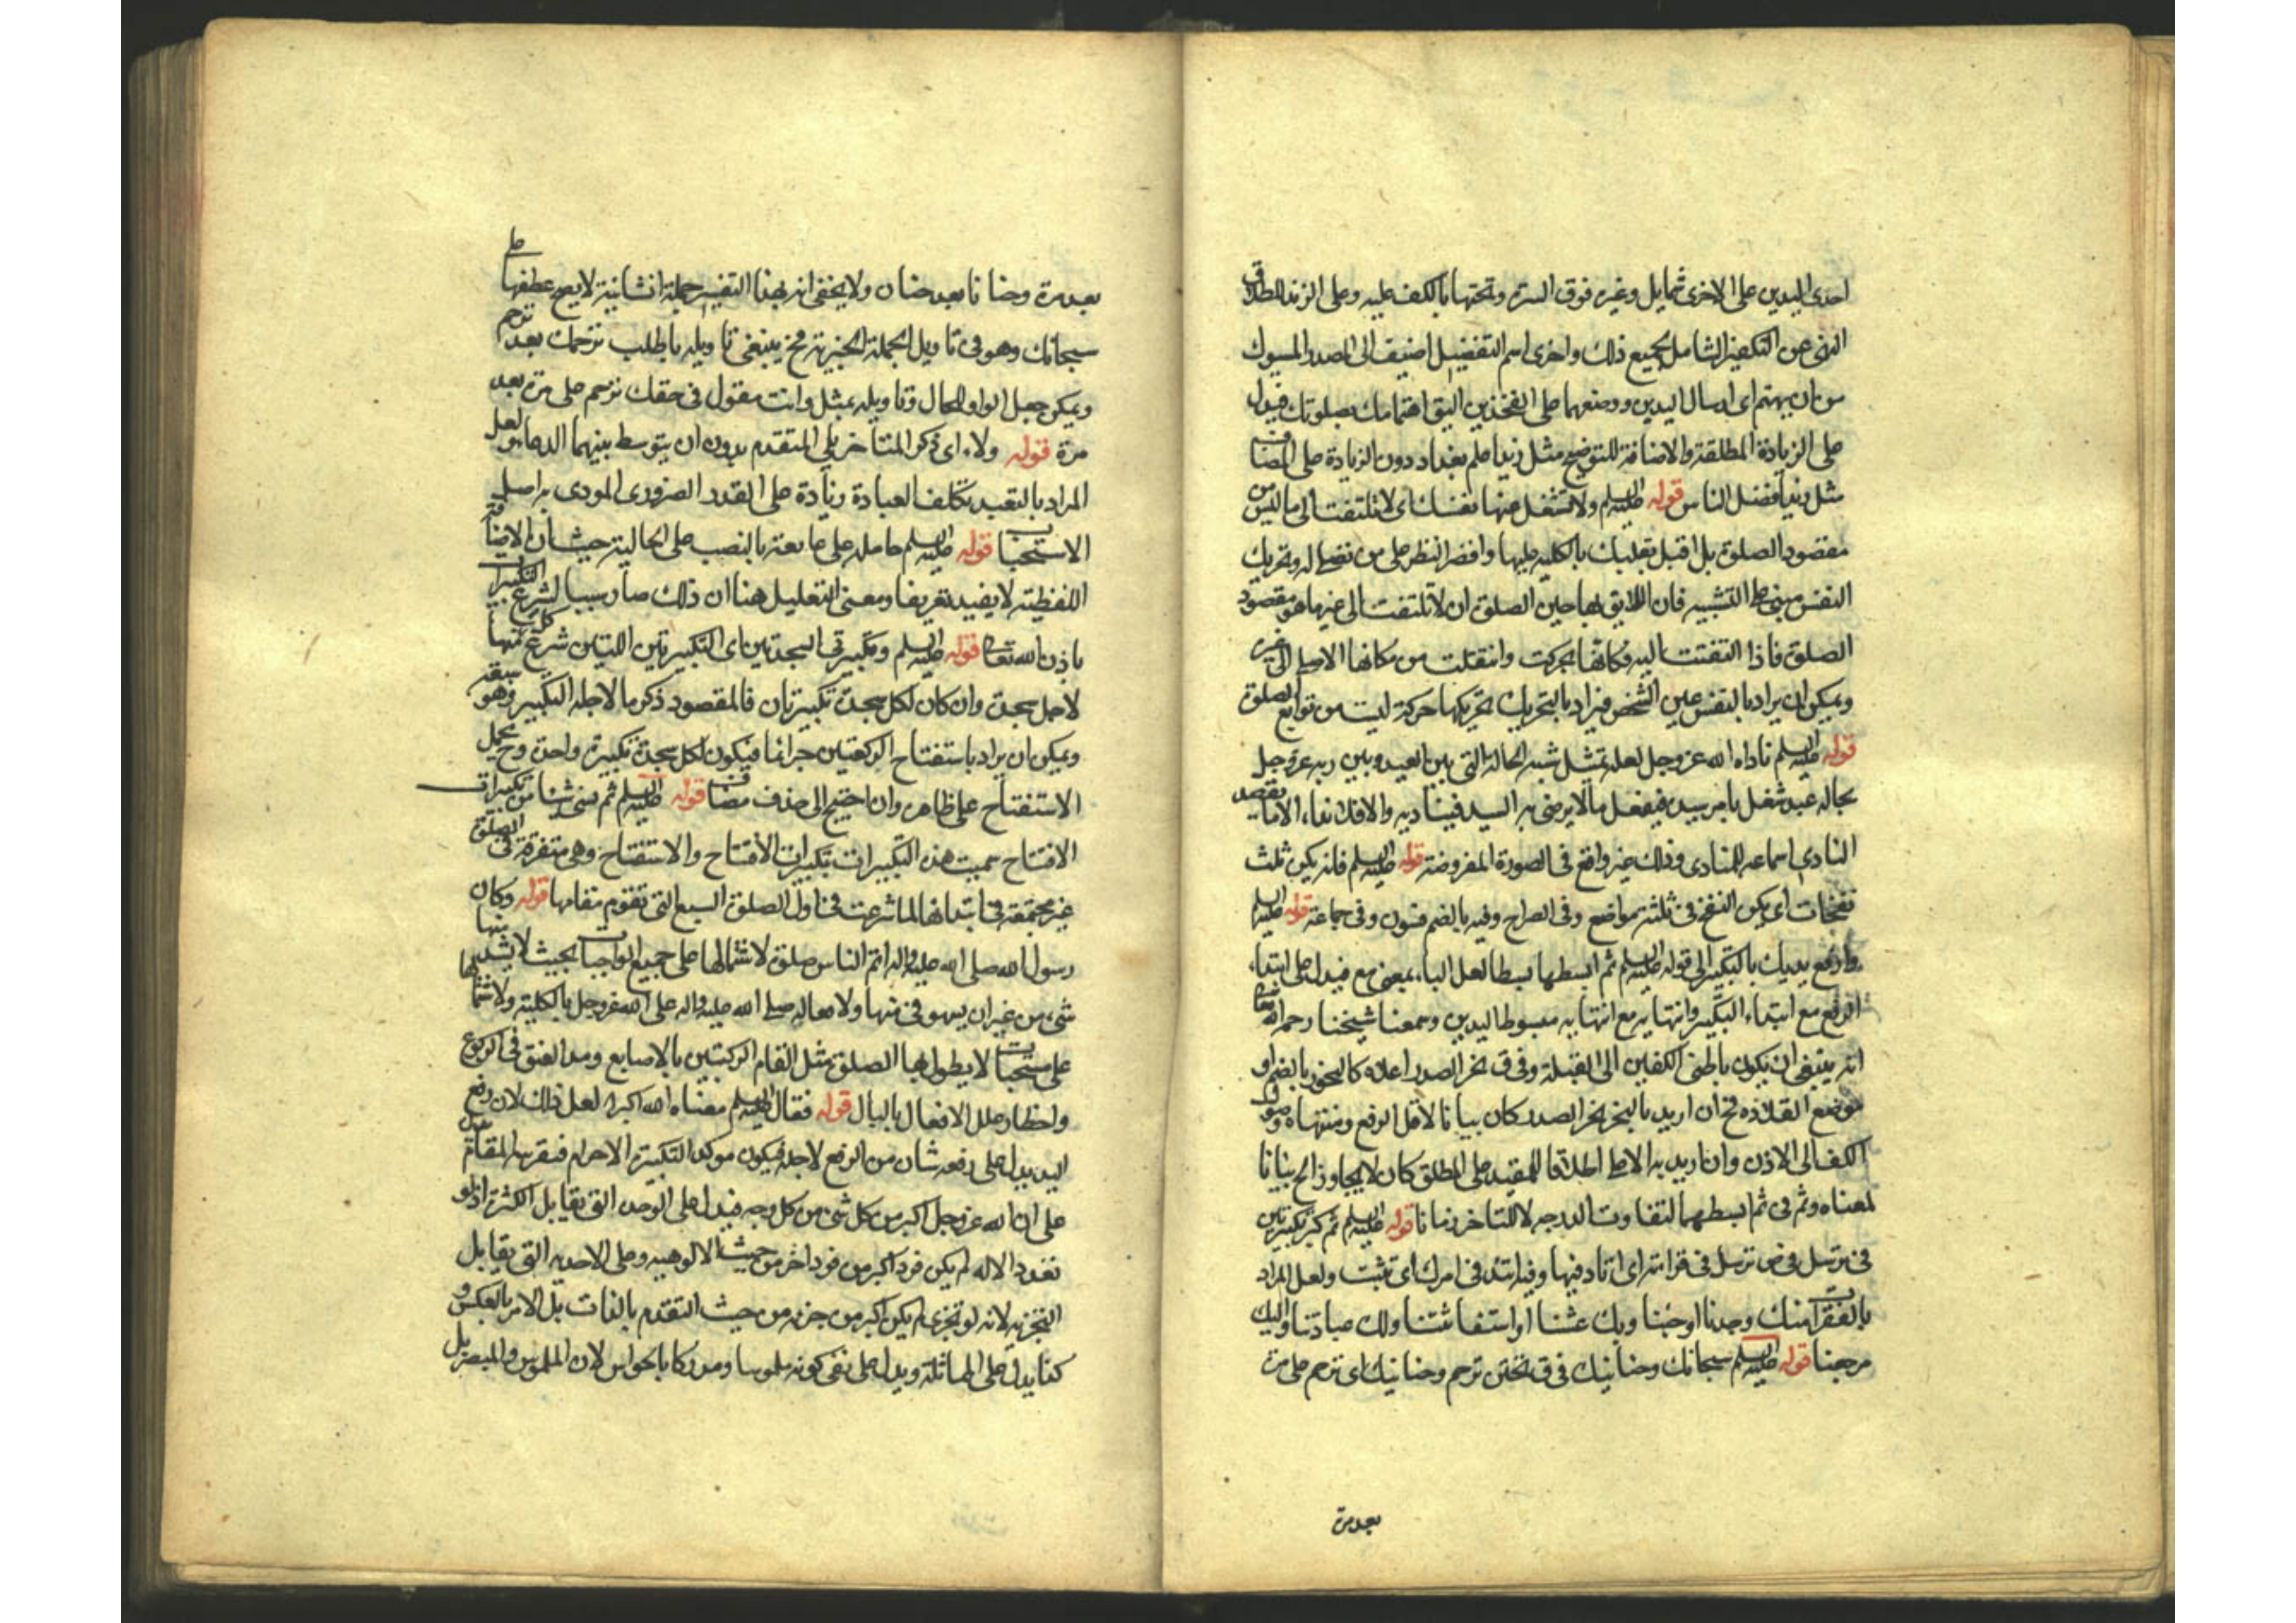 احدى اليدين على الاخرى شمايل وغيره فوق السرة وتحتها بالكف عليه وعلى الزند لاطلاق
النهى عن التكفير الشامل لجميع ذلك واخرى اسم التفضيل اضيف الى المصدر المسبوك
من ان يهتم اى ارسال اليدين ووضعهما على الفخذين اليق اهتمامك بصلوتك فيدل
على الزيادة المطلقة والاضافة للتوضيح مثل زيد اعلم بغداد دون الزيادة على المضاف
مثل زيد افضل الناس قوله عليه السلم ولا تشغل عنها نفسك اى لا تلتفت الى ما ليس من
مقصود الصلوة بل اقبل بقلبك بالكليه عليها واقصر النظر على من تصلى له وتحريك
النفس مبنى على التشبيه فان اللايق بها حين الصلوة ان لا تلتفت الى غير ما هو مقصود
الصلوة فاذا التفتت اليه فكانها تحركت وانتقلت من مكانها الاصلى الى غيره
ويمكن ان يراد بالنفس عين الشخص فيراد بالتحريك تحريكها حركة ليست من توابع الصلوة
قوله عليه السلم ناداه الله عز وجل لعله تمثيل شبه الحالة التى بين العبد وبين ربه عز وجل
بحالة عبد شغل بامر سيده فيفعل ما لا يرضى به السيد فيناديه والا فلا نداء الا ما يقصد
المنادى اسماعه للمنادى وذلك غير واقع فى الصورة المفروضة قوله عليه السلم فانه يكن ثلث
نفخات اى يكن النفخ فى ثلثة مواضع وفى الصراح وفيه بالضم فنون وفى جماعة قوله عليه السلم
وارفع يديك بالتكبير الى قوله عليه السلم ثم ابسطها بسطا لعل الباء بمعنى مع فيدل على ابتداء
الرفع مع ابتداء التكبير وانتهايه مع انتهايه مبسوط اليدين وسمعنا شيخنا رحمه الله تعالى
انه ينبغى ان يكون باطنى الكفين الى القبلة وفى ق نحر الصدر اعلاه كالنحور بالضم او
موضع القلادة فح ان اريد بالنحر نحر الصدر كان بيانا لاقل الرفع ومنتهاه وصول
الكف الى الاذن وان اريد به الاعلى اطلاقا للمقيد على المطلق كان لا يجاوز الخ بيانا
لمعناه وثم فى ثم ابسطهما لتفاوت الدرجه لا للتاخر زمانا قوله عليه السلم ثم كبر تكبيرتين
فى ترسل فى ص ترسل فى قرائته اى اتاد فيها وفيه اتئد فى امرك اى تثبت ولعل المراد
بالفقرات منك وجدنا او حبنا وبك عشنا او استغاثتنا ولك عبادتنا واليك
مرجعنا قوله عليه السلم سبحانك وحنانيك فى ق تحنن ترحم وحنانيك اى ترحم على مرة
بعد مرة
بعد مرة وحنانا بعد حنان ولا يخفى انه بهذا التفسير جملة انشائية لا يصح عطفها على
سبحانك وهو فى تاويل الجملة الخبرية فح ينبغى تاويله باطلب ترحمك بعد ترحم
ويمكن جعل الواو للحال وتاويله بمثل وانت مقول فى حقك ترحم على مرة بعد
مرة قوله ولاء اى ذكر المتاخر يلى المتقدم بدون ان يتوسط بينهما الدعا ولعل
المراد بالتقييد تكلف العبادة زيادة على القدر الضرورى المودى به اصل
الاستحباب قوله عليه السلم حامله على ما بعته بالنصب على الحالية حيث ان الاضافة
اللفظية لا يفيد تعريفا ومعنى التعليل هنا ان ذلك صار سببا لشرع التكبيرات
باذن الله تعالى قوله عليه السلم وتكبيرتى السجدتين اى التكبيرتين اللتين شرع كل منها
لاجل سجدة وان كان لكل سجدة تكبيرتان فالمقصود ذكر ما لاجله التكبير وهو
ويمكن ان يراد باستفتاح الركعتين فيكون لكل سجدة تكبيرة واحدة وح يحمل
الاستفتاح على ظاهره وان احتيج الى حذف مضاف قوله عليه السلم ثم نسى شيئا من تكبيرات
الافتاح سميت هذه التكبيرات تكبيرات الافتتاح والاستفتاح وهى متفرقة فى الصلوة
غير مجتمعة فى ابتدائها لما شرعت فى اول الصلوة السبع التى تقوم مقامها قوله وكان
رسول الله صلى الله عليه واله اتم الناس صلوة لاشتمالها على جميع الواجبات بحيث لا يشذ منها
شىء من غير ان يسهو فى منها ولا صلى الله عليه واله على الله عز وجل بالكلية ولاشتمالها
على مستحبات لا يطول بها الصلوة مثل القام الركبتين بالاصابع ومد العنق فى الركوع
واخطار علل الافعال بالبال قوله فقال عليه السلم معناه الله اكبر لعل ذلك لان رفع
اليد يدل على رفعة شان من الرفع لاجله فيكون موكد التكبيرة الاحرام فبقرينة المقام يدل
على ان الله عز وجل اكبر من كل شئ من كل وجه فيدل على الوحدة التى تقابل الكثرة اذ لو
تعدد الاله لم يكن فرد اكبر من فرد اخر من حيث الالوهيه وعلى الاحديه التى يقابل
التجزيه لانه لو تجزى لم يكن اكبر من جزئه من حيث التقدم بالذات بل الامر بالعكس و
كذا يدل على المماثلة ويدل على نفى كونه ملموسا ومدركا بالحواس لان الملموس والمبصر بل